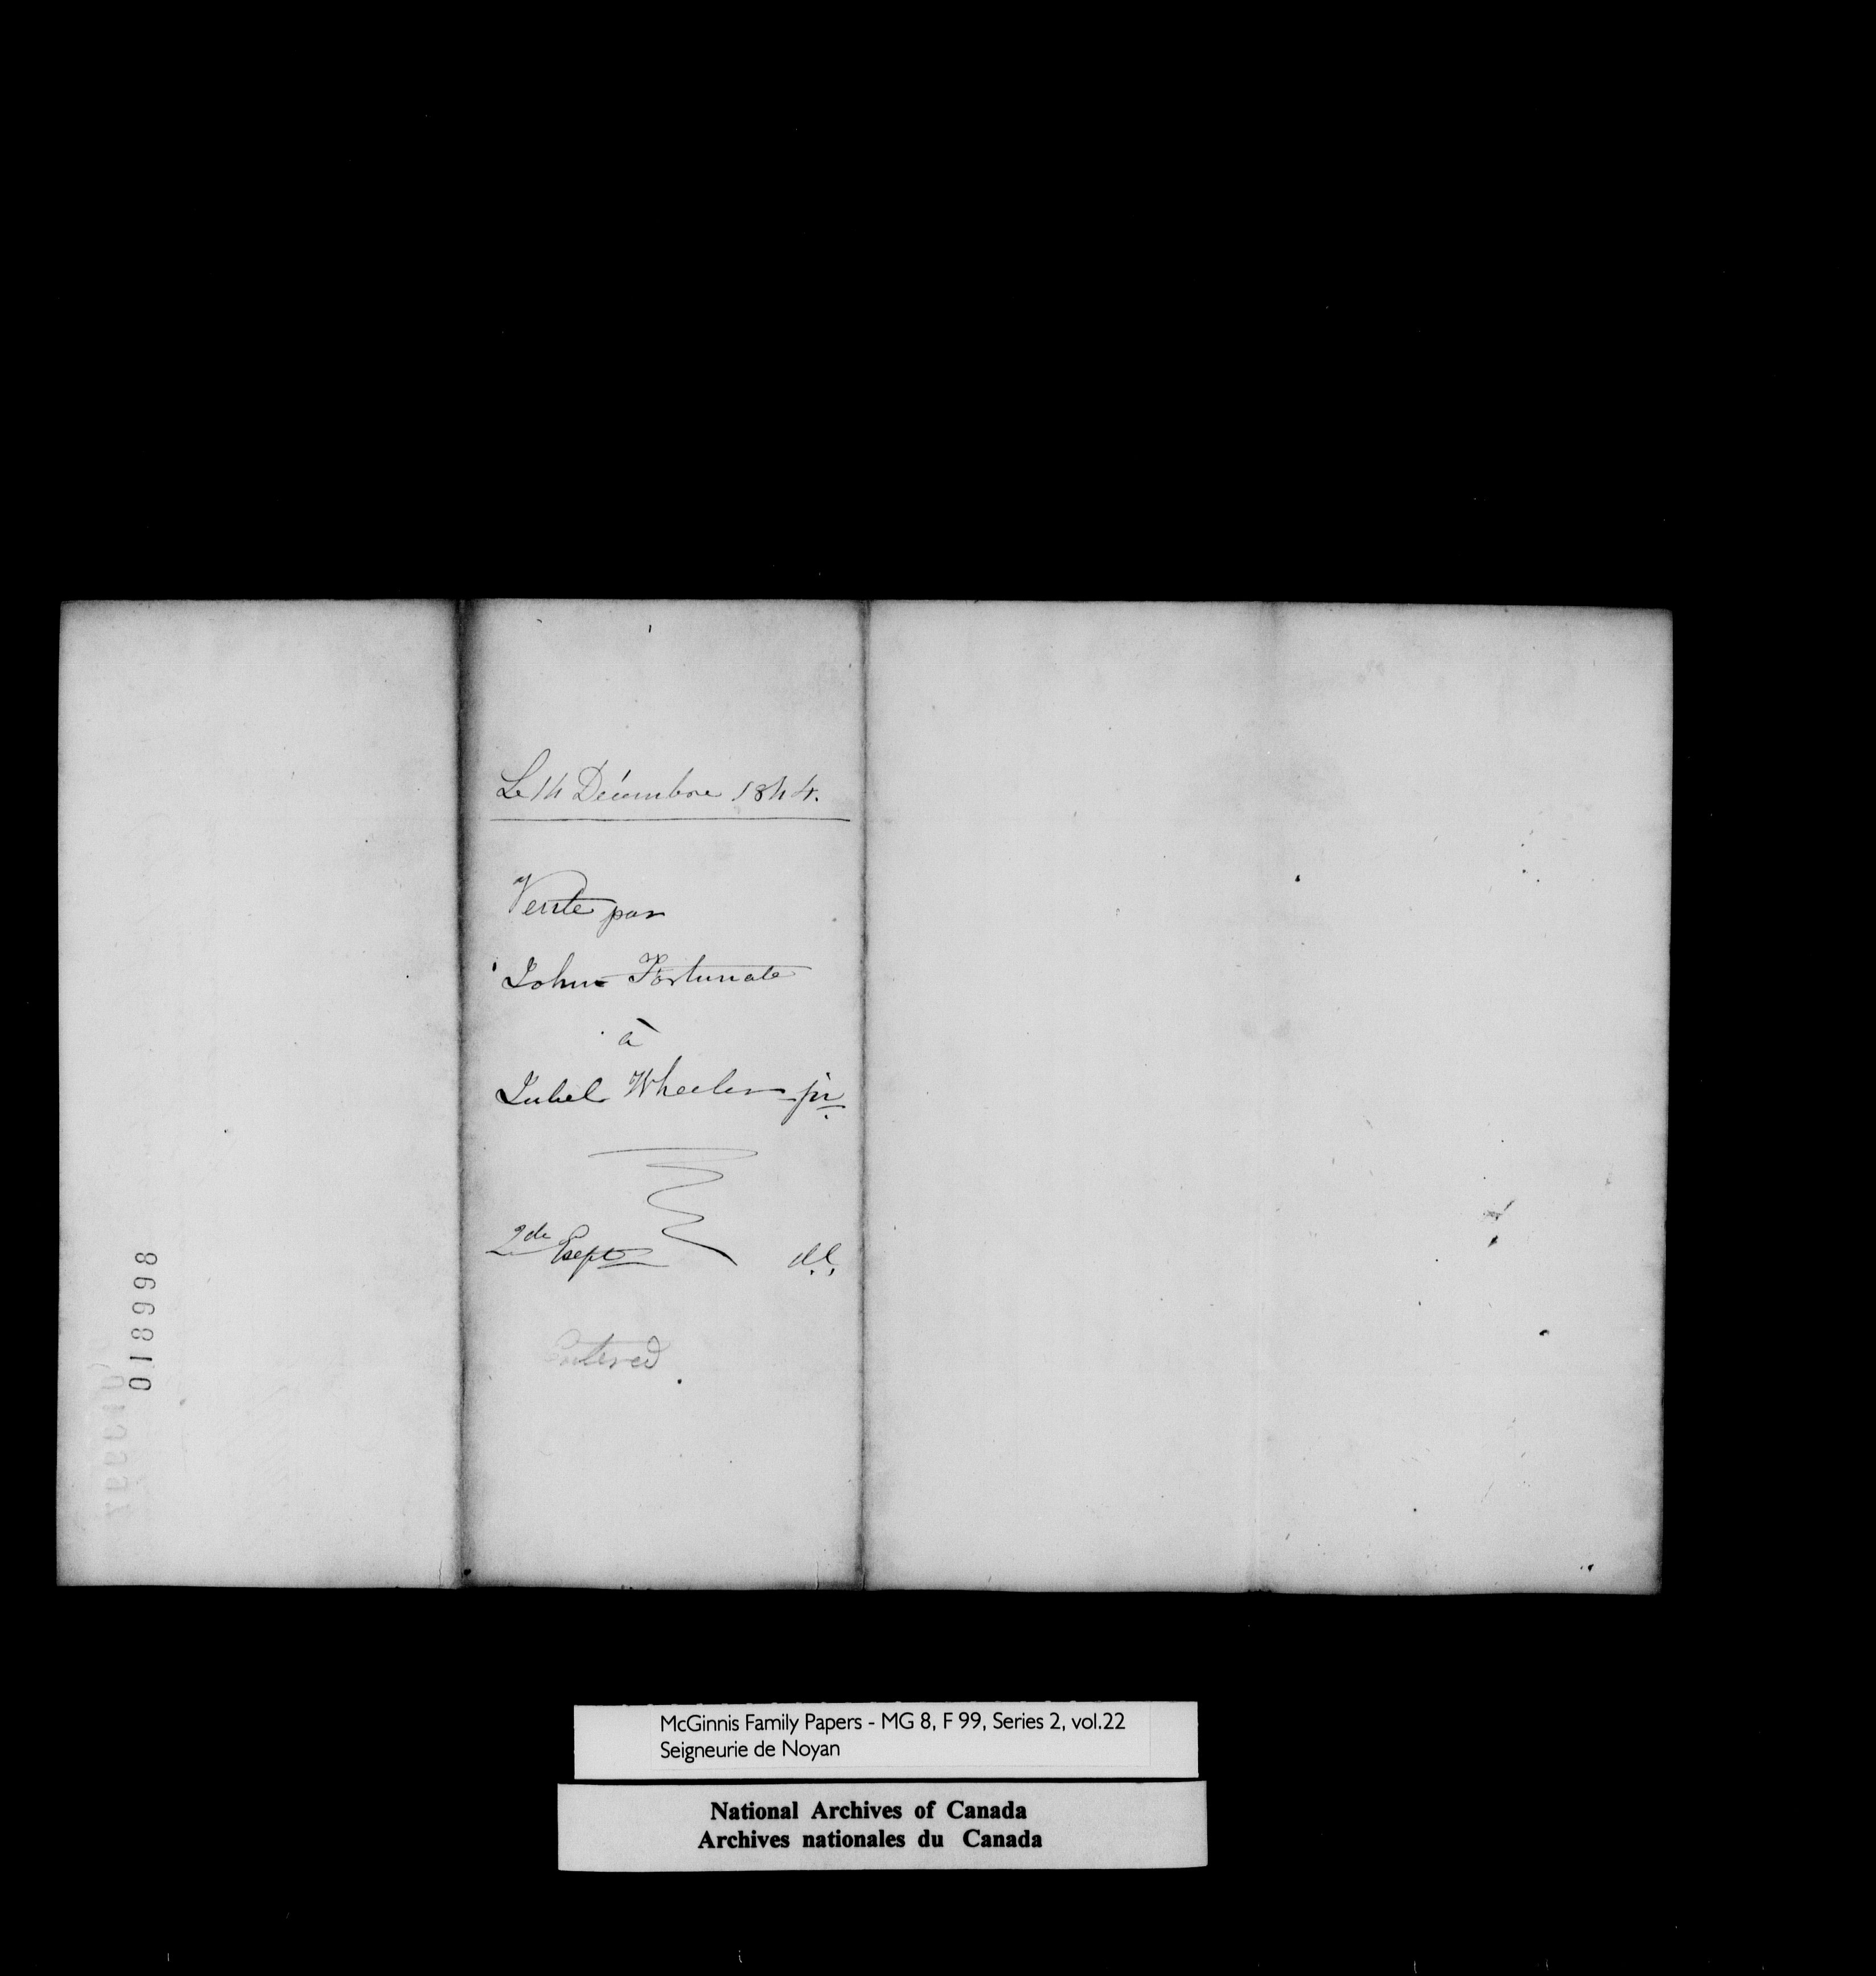 Le 14 Décembre 1844.
Vente par
John Fortunate
à
Jubel Wheeler jr
2de Expt
Entered
018998
McGinnis Family Papers - MG 8, F 99, Series 2, vol.22
Seigneurie de Noyan
National Archives of Canada
Archives nationales du Canada